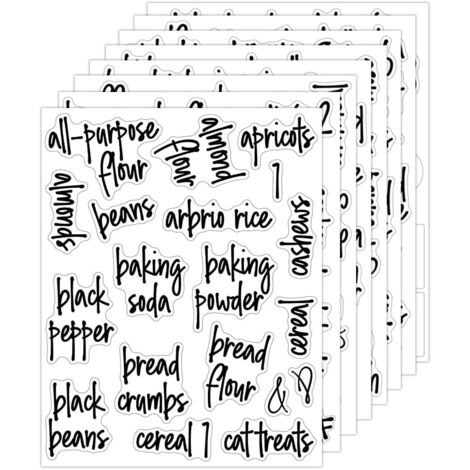 all-purpose
flour
almond
flour
apricots
1
almonds
beans
arbrio rice
cashews
baking
soda
baking
powder
black
pepper
cereal
bread
crumbs
bread
flour
& D
black
beans
cereal 1
cat treats